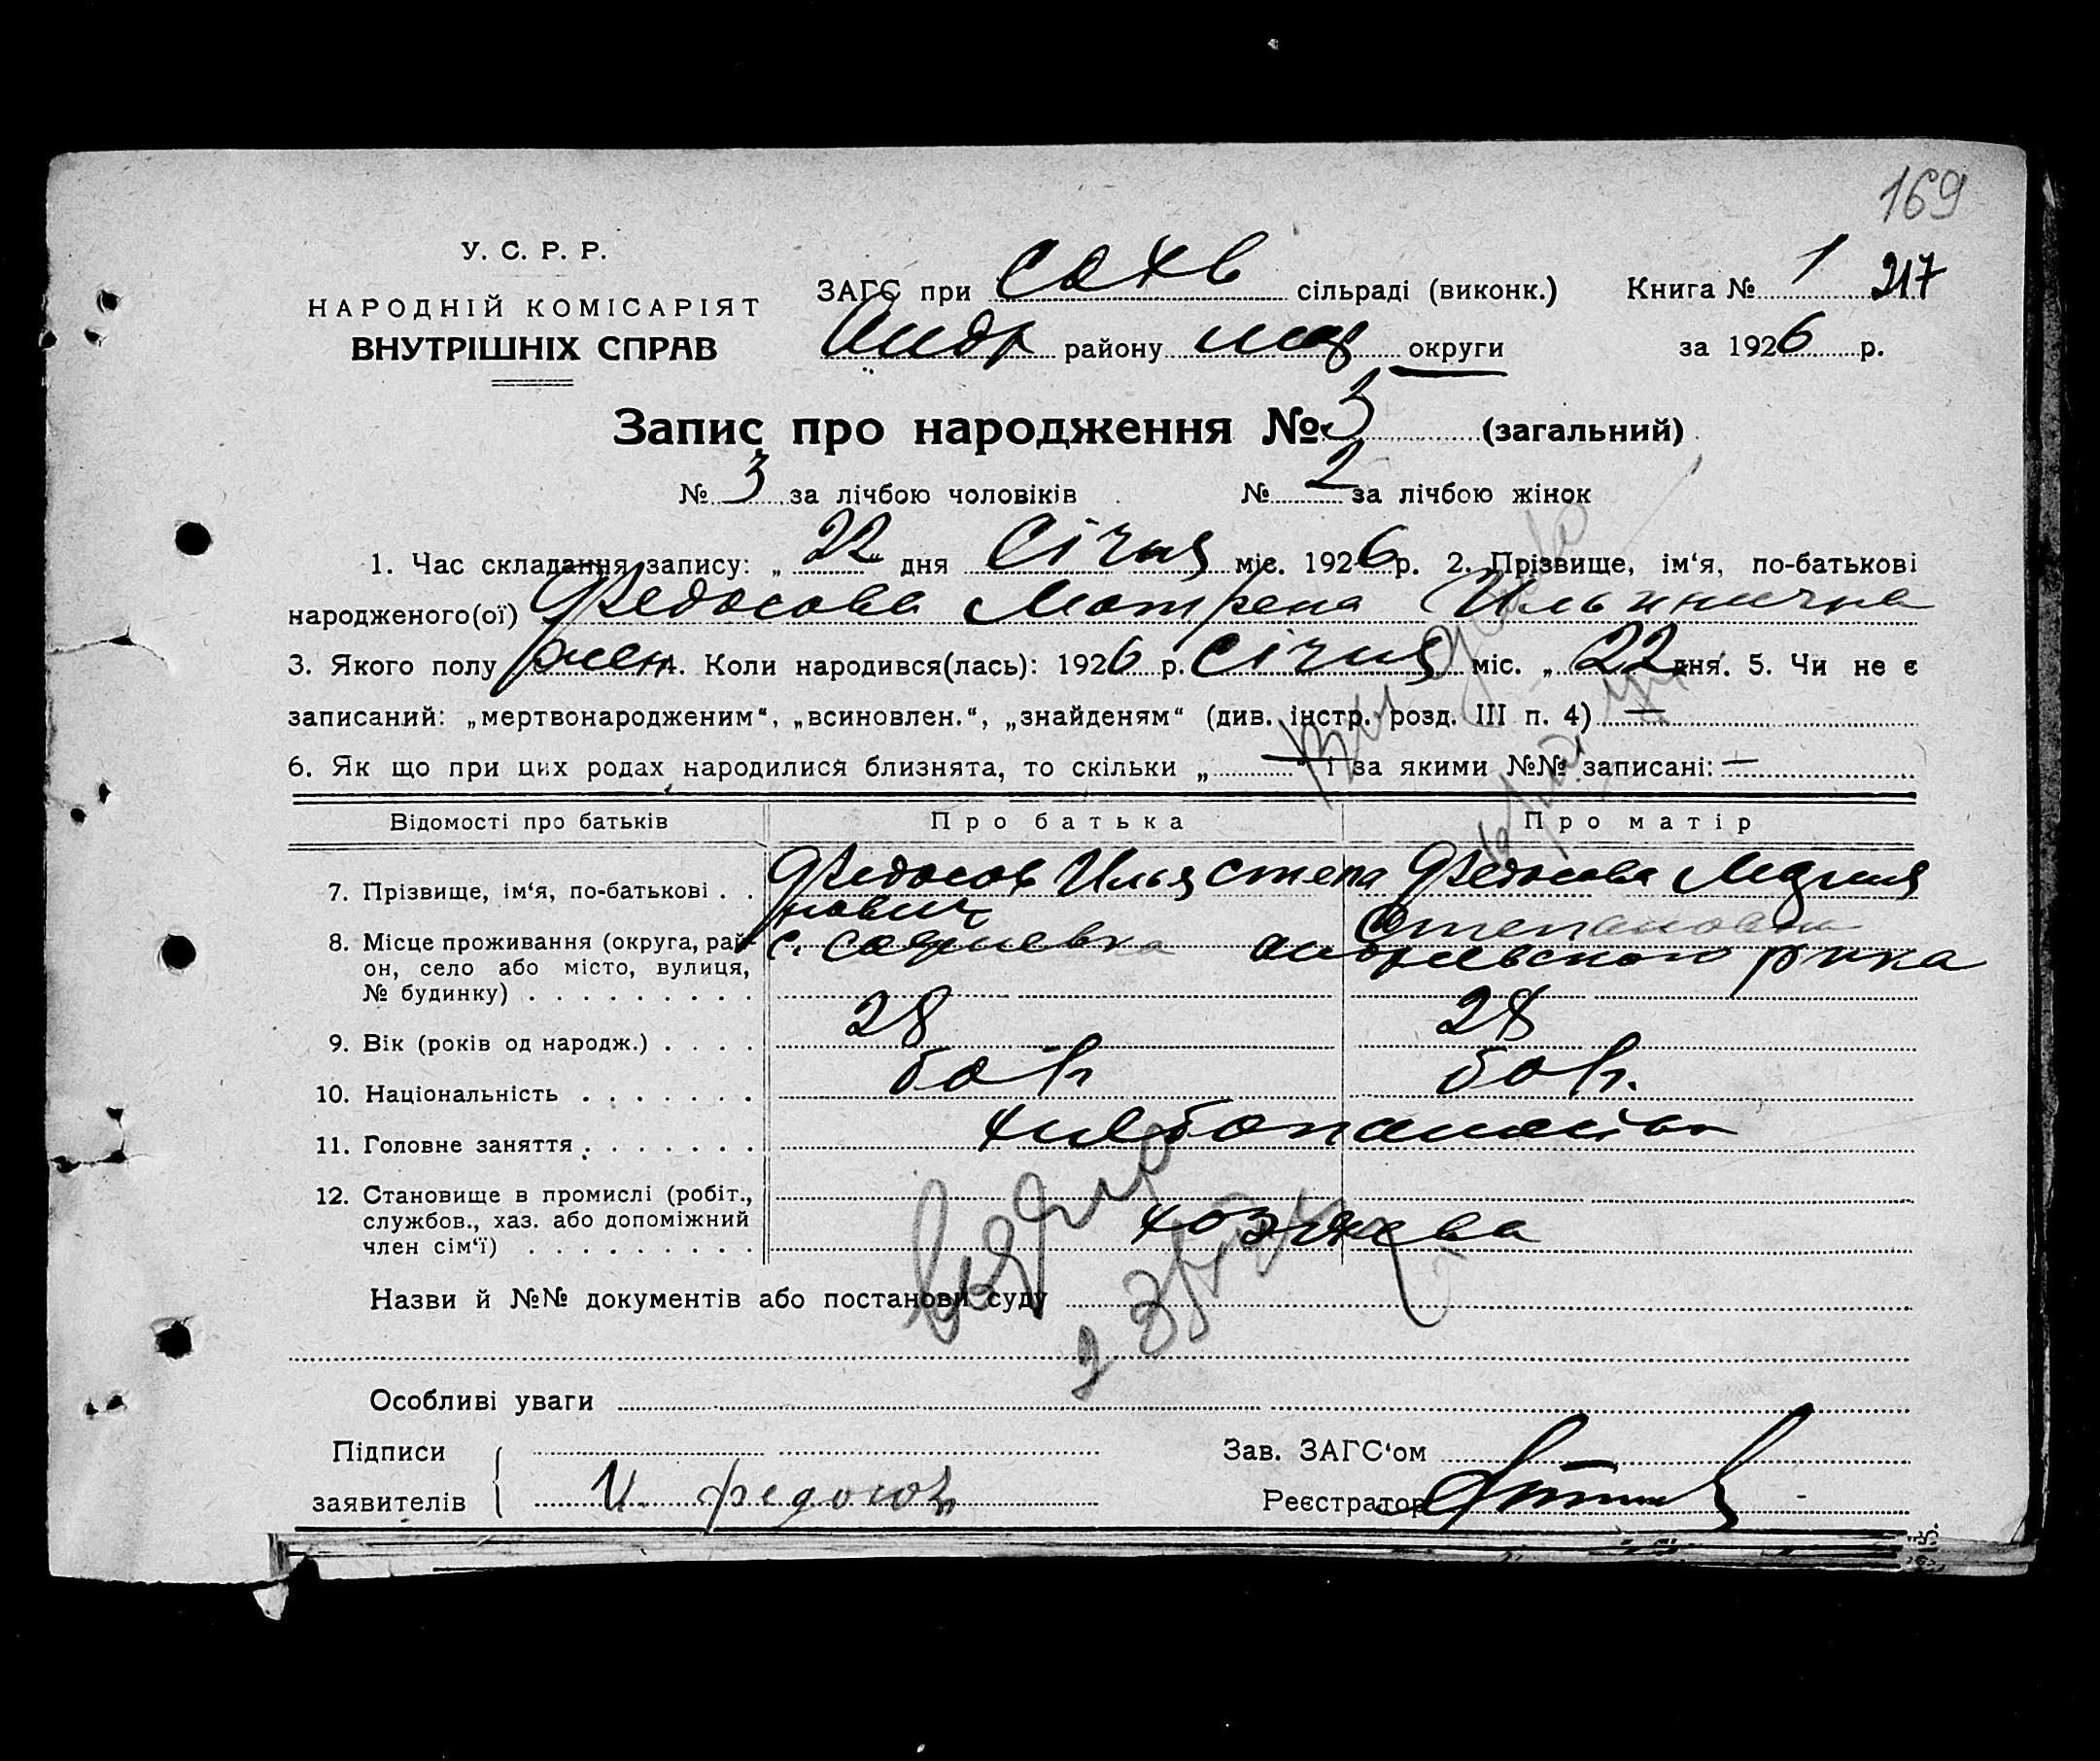 169
У. С. Р. Р.
НАРОДНІЙ КОМІСАРІЯТ
ВНУТРІШНІХ СПРАВ
ЗАГС при Сахв сільраді (виконк.)
Андр району округи
Книга № 1 217
за 1926 р.
Запис про народження № 3 (загальний)
№ 3 за лічбою чоловіків № 2 за лічбою жінок
1. Час складання запису: „ 22 дня Січня міс. 1926 р. 2. Прізвище, ім‘я, по-батькові
народженого(ої) Федосова Мотрена Ильинична
3. Якого полу жен 4. Коли народився(лась): 1926 р. Січня міс. „ 22 дня. 5. Чи не є
записаний: „мертвонародженим“, „всиновлен.“, „знайденям“ (див. інстр. розд. III п. 4) —
6. Як що при цих родах народилися близнята, то скільки „ — “ і за якими №№ записані: —
Відомості про батьків Про батька Про матір
7. Прізвище, ім‘я, по-батькові . . Федосов Илья Степа Федосова Мария
нович Степановна
8. Місце проживання (округа, рай-
он, село або місто, вулиця,
№ будинку) . . . . . . . . .
9. Вік (років од народж.) . . . . 28 28
10. Національність . . . . . . . бол. бол.
11. Головне заняття . . . . . . . хлебопашество
12. Становище в промислі (робіт.,
службов., хаз. або допоміжний
член сім‘ї) . . . . . . . . .
Назви й №№ документів або постанови суду
Особливі уваги
Підписи
заявителів И. Федосов
Зав. ЗАГС‘ом
Реєстратор